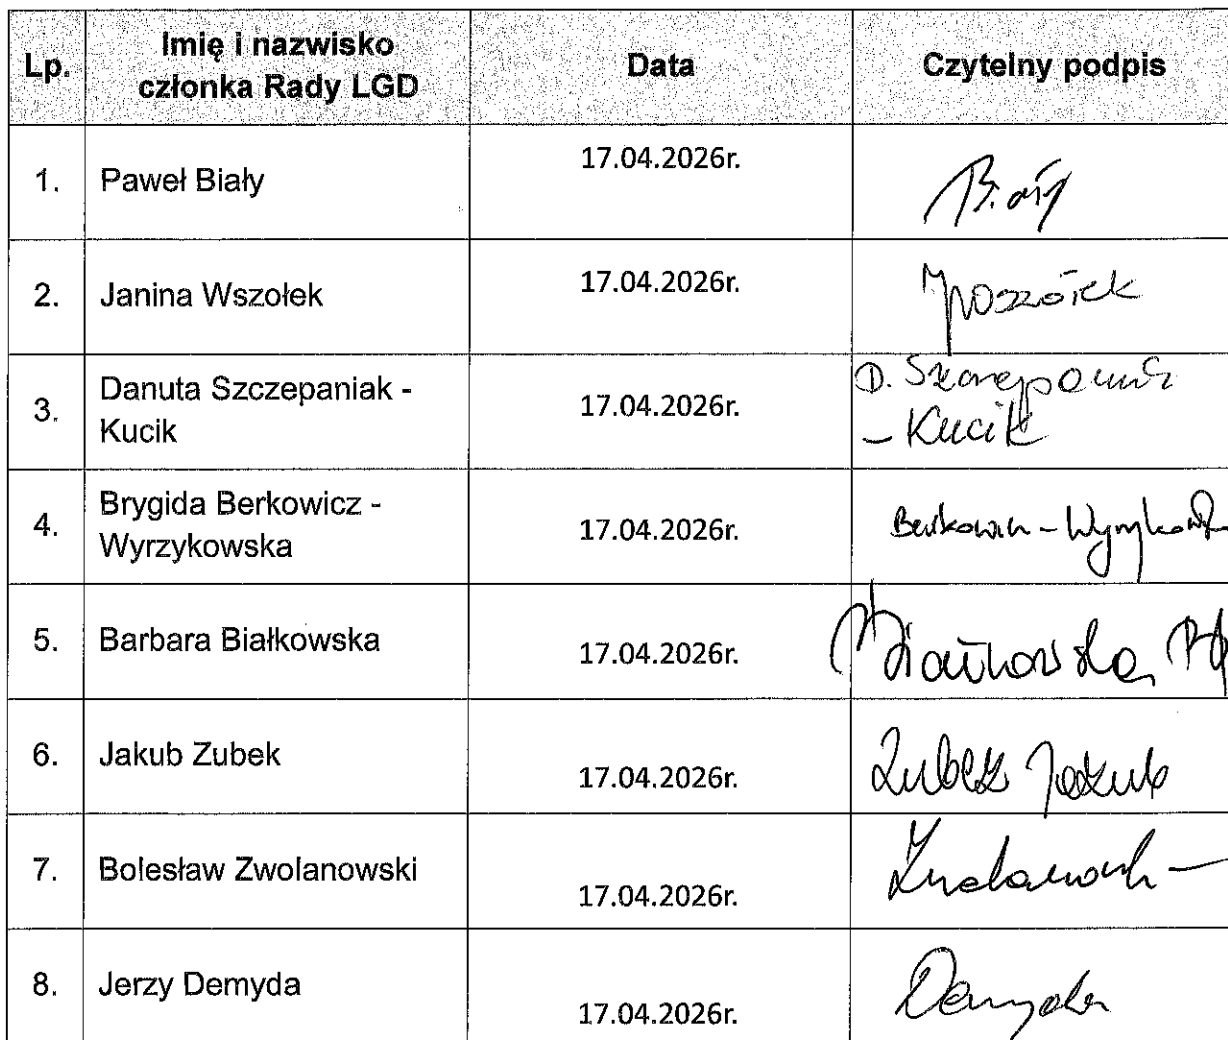 Lp.
Imię i nazwisko
członka Rady LGD
Data
Czytelny podpis
1.
Paweł Biały
17.04.2026r.
2.
Janina Wszołek
17.04.2026r.
3.
Danuta Szczepaniak -
Kucik
17.04.2026r.
D.
- Kucik
4.
Brygida Berkowicz -
Wyrzykowska
17.04.2026r.
5.
Barbara Białkowska
17.04.2026r.
Białkowska
6.
Jakub Zubek
17.04.2026r.
Zubek Jakub
7.
Bolesław Zwolanowski
17.04.2026r.
8.
Jerzy Demyda
17.04.2026r.
Demyda